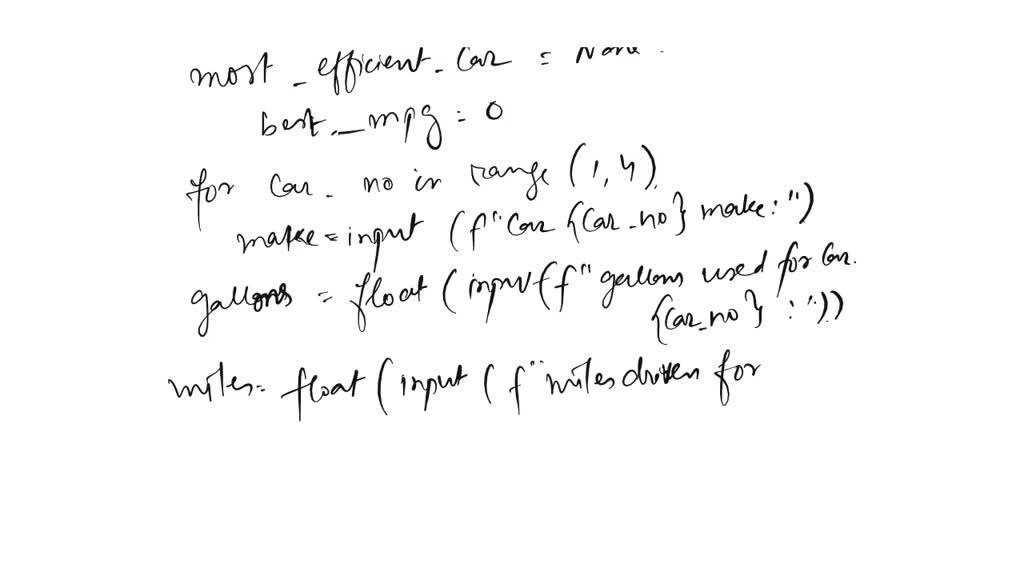 most_efficient_car = None.
best_mpg = 0
for car_no in range (1,4)
make = input (f"Car {car_no} make:")
gallons = float (input(f" gallons used for car.
{car_no} :"))
miles = float (input ( f" miles driven for